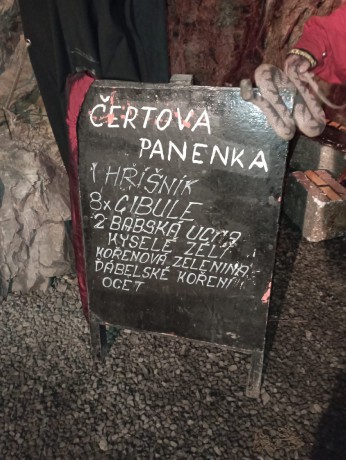 ČERTOVA
PANENKA
1 HŘÍŠNÍK
8x CIBULE
2 BABSKÁ UCHA
KYSELÉ ZELÍ
KOŘENOVÁ ZELENINA
ĎÁBELSKÉ KOŘENÍ
OCET